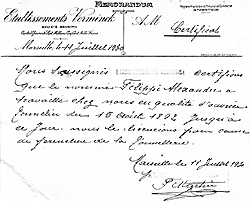 MEMORANDUM
Etablissements Verminck
A.M
SOCIÉTÉ ANONYME
Certificat
Marseille, le 11 Juillet 1920
Nous Soussignés certifions
que le nommé Filippi Alexandre a
travaillé chez nous en qualité d'ouvrier
tonnelier du 15 Août 1892 jusqu'à
ce jour. nous le licencions pour cause
de fermeture de la Tonnellerie.
Marseille le 11 Juillet 1920